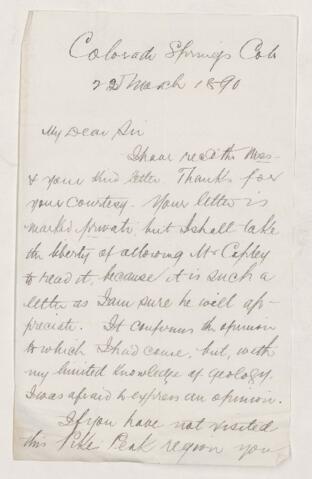 Colorado Springs Colo
22 March 1890
My Dear Sir
I have rec'd the Mss
& your kind letter. Thanks for
your courtesy. Your letter is
marked private, but I shall take
the liberty of allowing Mr Copley
to read it, because it is such a
letter as I am sure he will ap-
preciate. It confirms the opinion
to which I had come, but, with
my limited knowledge of geology,
I was afraid to express an opinion.
If you have not visited
this Pike Peak region you